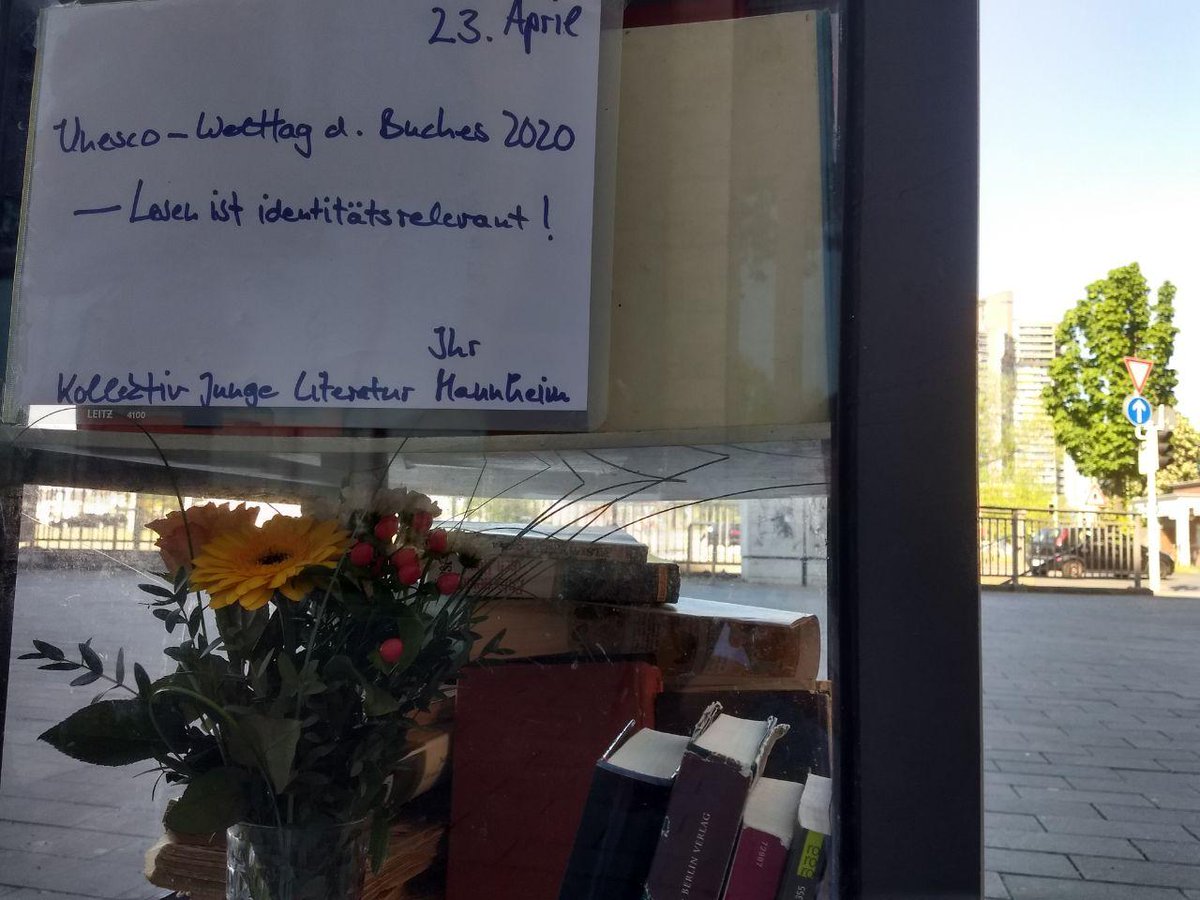 23. April
Unesco-Welttag d. Buches 2020
— Lesen ist identitätsrelevant!
Ihr
Kollektiv Junge Literatur Mannheim
LEITZ 4100
BERLIN VERLAG
72907
ro
ro
ro